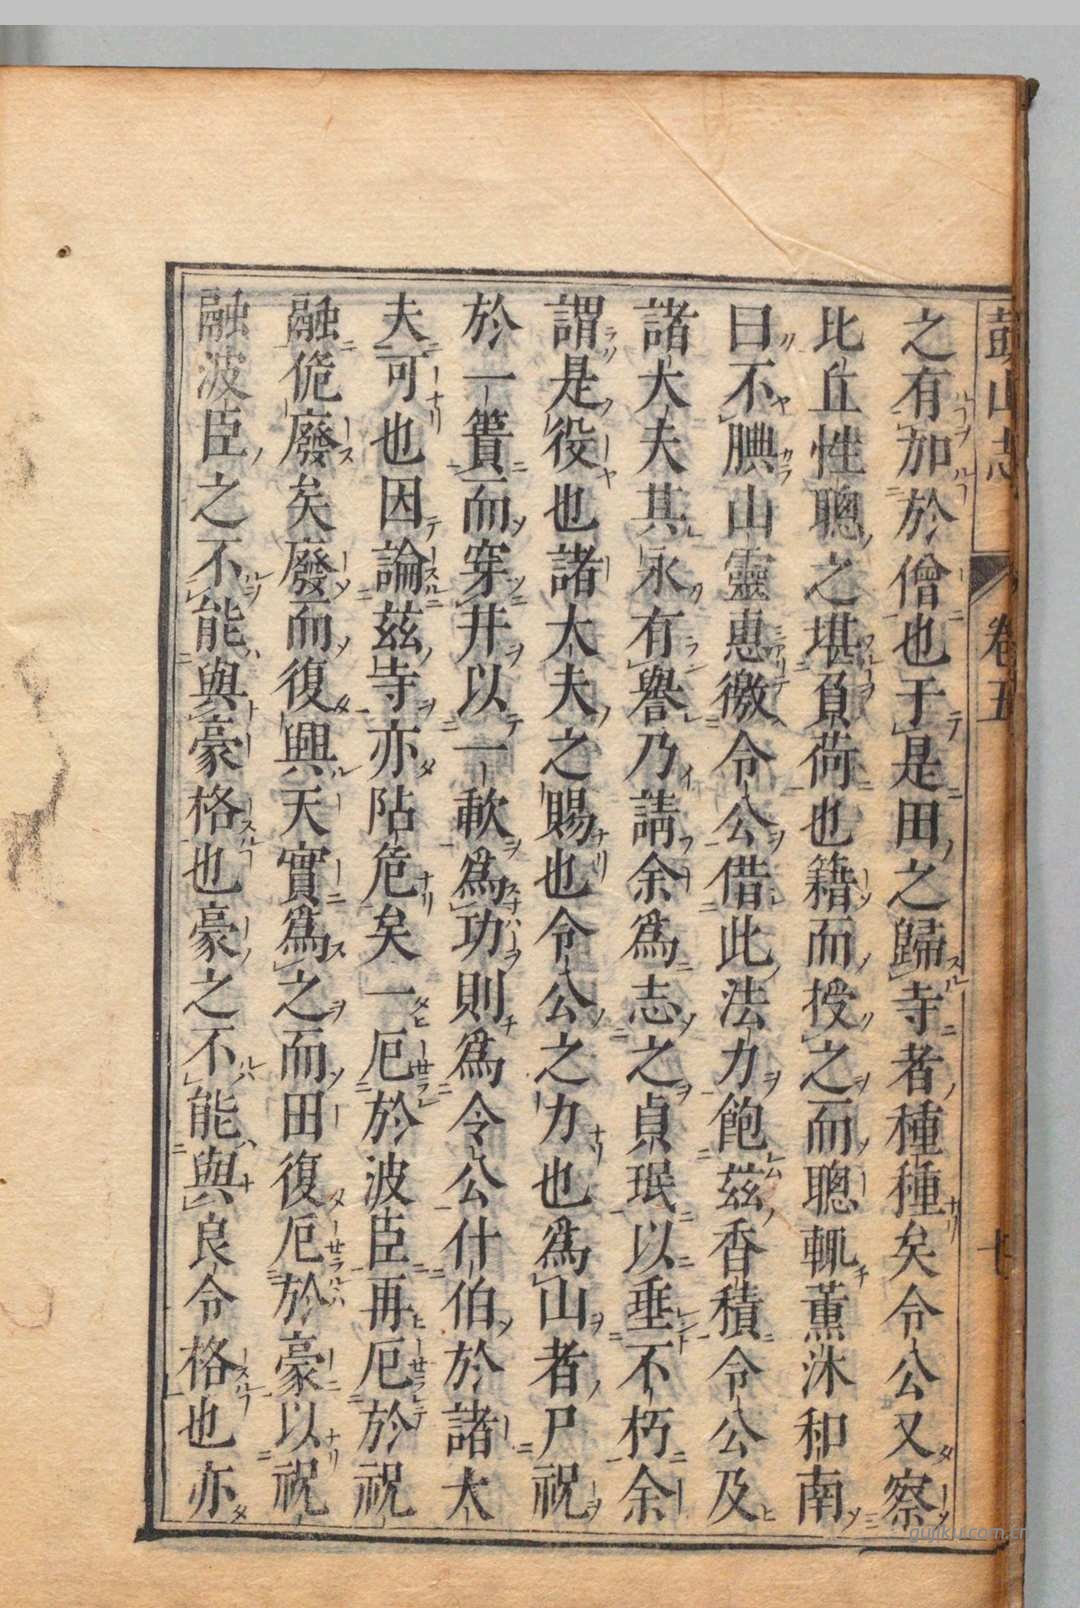 鼓山志 卷五
之有加於僧也于是田之歸寺者種種矣令公又察
比丘性聰之堪負荷也籍而授之而聰輒薰沐和南
曰不腆山靈惠徼令公借此法力飽茲香積令公及
諸大夫其永有譽乃請余爲志之貞珉以垂不朽余
謂是役也諸大夫之賜也令公之力也爲山者尸祝
於一簣而穿井以一軟爲功則爲令公什伯於諸大
夫可也因論茲寺亦阽危矣一厄於波臣再厄於祝
融俛廢矣廢而復興天實爲之而田復厄於豪以祝
融波臣之不能與豪格也豪之不能與良令格也亦
gujiku.com.cn